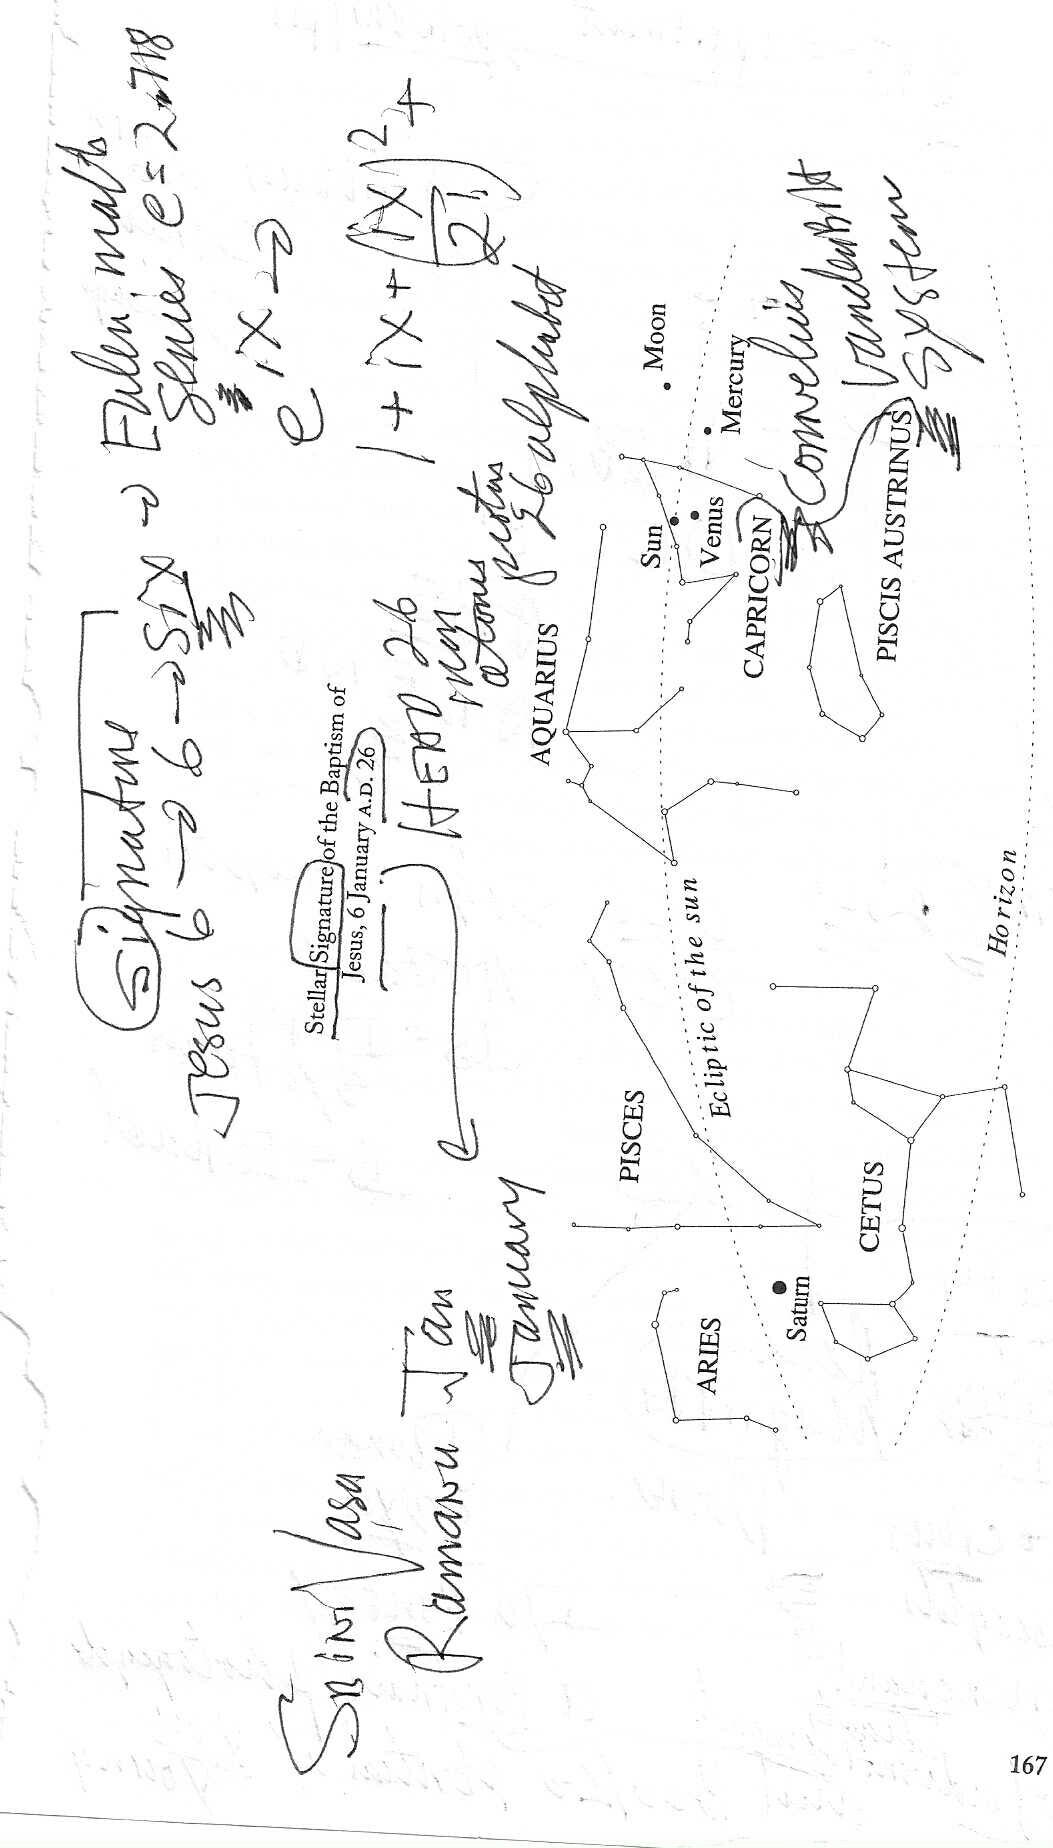 Signature
Jesus 6 → 6 → SIX → Euler math
Series e = 2.718
e^ix →
1 + ix + (ix)²/2! +
Stellar Signature of the Baptism of
Jesus, 6 January A.D. 26
HEAD 26
iron
atomic protons
26 alphabet
Srinivasa
Ramanu Jan
January
AQUARIUS
Sun
Venus
Moon
Mercury
CAPRICORN
Cornelius
Vanderbilt
System
PISCIS AUSTRINUS
PISCES
Ecliptic of the sun
ARIES
Saturn
CETUS
Horizon
167